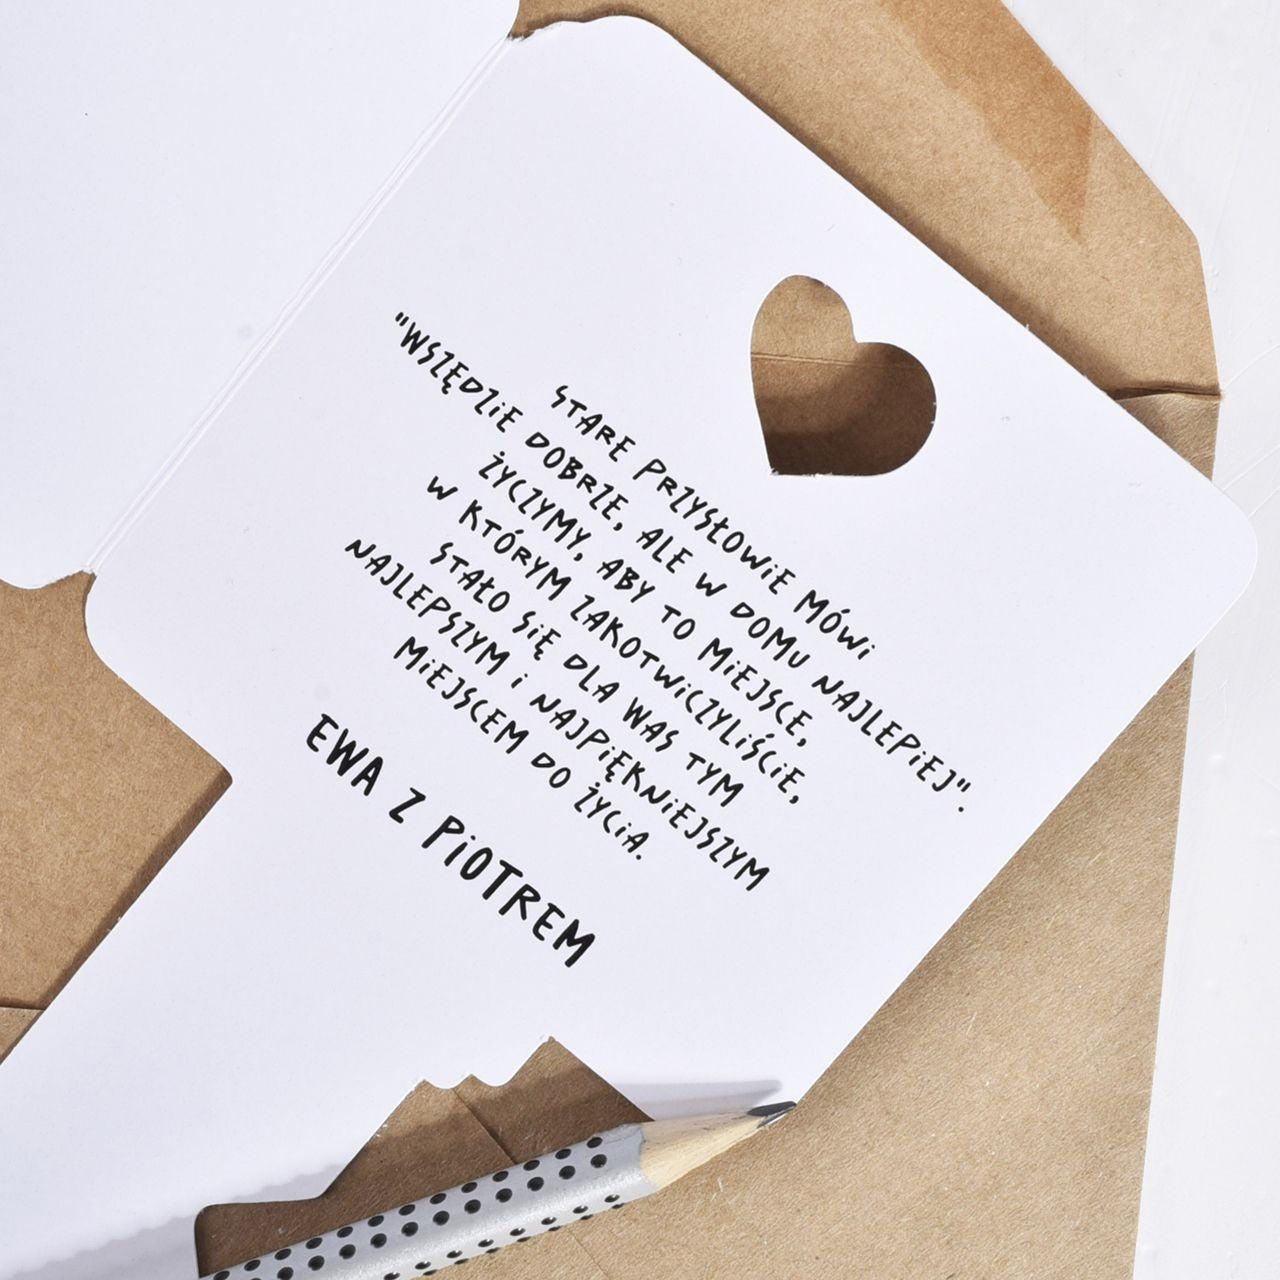 STARE PRZYSŁOWIE MÓWI
"WSZĘDZIE DOBRZE, ALE W DOMU NAJLEPIEJ".
ŻYCZYMY, ABY TO MIEJSCE,
W KTÓRYM ZAKOTWICZYLIŚCIE,
STAŁO SIĘ DLA WAS TYM
NAJLEPSZYM I NAJPIĘKNIEJSZYM
MIEJSCEM DO ŻYCIA.
EWA Z PIOTREM